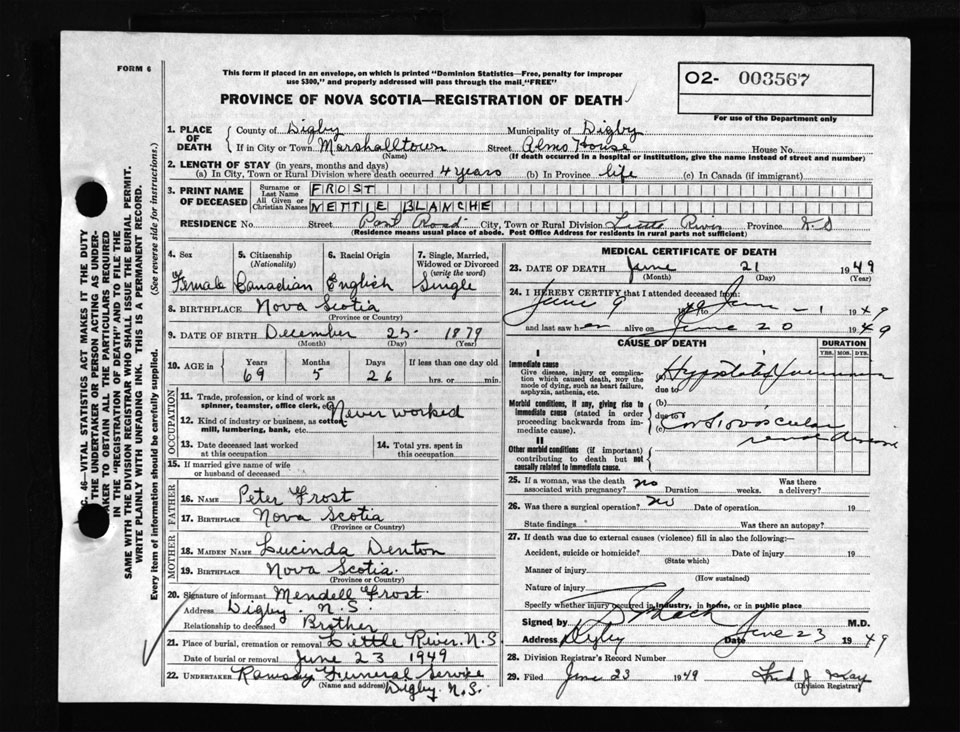 FORM 6
This form if placed in an envelope, on which is printed "Dominion Statistics—Free, penalty for improper
use $300," and properly addressed will pass through the mail "FREE"
O2- 003567
For use of the Department only
PROVINCE OF NOVA SCOTIA—REGISTRATION OF DEATH
1. PLACE OF DEATH County of Digby Municipality of Digby
If in City or Town Marshalltown Street Alms House House No.
(Name) (If death occurred in a hospital or institution, give the name instead of street and number)
2. LENGTH OF STAY (in years, months and days)
(a) In City, Town or Rural Division where death occurred 4 years (b) In Province life (c) In Canada (if immigrant)
3. PRINT NAME OF DECEASED Surname or Last Name FROST
All Given or Christian Names NETTIE BLANCHE
RESIDENCE No. Street Road City, Town or Rural Division Little River Province N.S
(Residence means usual place of abode. Post Office Address for residents in rural parts not sufficient)
4. Sex 5. Citizenship (Nationality) 6. Racial Origin 7. Single, Married, Widowed or Divorced (write the word)
Female Canadian English Single
8. BIRTHPLACE Nova Scotia
(Province or Country)
9. DATE OF BIRTH December 25 1879
(Month) (Day) (Year)
10. AGE in Years Months Days If less than one day old
69 5 26 hrs. or min.
OCCUPATION
11. Trade, profession, or kind of work as
spinner, teamster, office clerk, etc. Never worked
12. Kind of industry or business, as cotton
mill, lumbering, bank, etc.
13. Date deceased last worked at this occupation 14. Total yrs. spent in this occupation
15. If married give name of wife
or husband of deceased
FATHER
16. NAME Peter Frost
17. BIRTHPLACE Nova Scotia
(Province or Country)
MOTHER
18. MAIDEN NAME Lucinda Denton
19. BIRTHPLACE Nova Scotia.
(Province or Country)
20. Signature of informant Mendell Frost.
Address Digby. N.S.
Relationship to deceased Brother
21. Place of burial, cremation or removal Little River. N.S.
Date of burial or removal June 23 1949
22. UNDERTAKER Ramsay Funeral Service
(Name and address) Digby. N.S.
MEDICAL CERTIFICATE OF DEATH
23. DATE OF DEATH June 21 1949
(Month) (Day) (Year)
24. I HEREBY CERTIFY that I attended deceased from:
June 9 1949 to 1949
and last saw her alive on June 20 1949
CAUSE OF DEATH DURATION
YRS. MOS. DYS.
I
Immediate cause
Give disease, injury or complication which caused death, NOT the mode of dying, such as heart failure, asphyxia, asthenia, etc.
(a) Hypostatic Pneumonia
due to
Morbid conditions, if any, giving rise to immediate cause (stated in order proceeding backwards from immediate cause).
(b) due to
(c) Cardiovascular
renal disease
II
Other morbid conditions (if important) contributing to death but not causally related to immediate cause.
25. If a woman, was the death associated with pregnancy? no Duration weeks. Was there a delivery?
26. Was there a surgical operation? no Date of operation 19
State findings Was there an autopsy?
27. If death was due to external causes (violence) fill in also the following:—
Accident, suicide or homicide? Date of injury 19
(State which)
Manner of injury
(How sustained)
Nature of injury
Specify whether injury occurred in industry, in home, or in public place
Signed by M.D.
Address Digby Date June 23 1949
28. Division Registrar's Record Number
29. Filed June 23 1949 Fred J.
(Division Registrar)
C. 46—VITAL STATISTICS ACT MAKES IT THE DUTY
THE UNDERTAKER OR PERSON ACTING AS UNDER-
AKER TO OBTAIN ALL THE PARTICULARS REQUIRED
IN THE "REGISTRATION OF DEATH" AND TO FILE THE
SAME WITH THE DIVISION REGISTRAR WHO SHALL ISSUE THE BURIAL PERMIT.
WRITE PLAINLY WITH UNFADING INK. THIS IS A PERMANENT RECORD.
Every item of information should be carefully supplied. (See reverse side for instructions.)